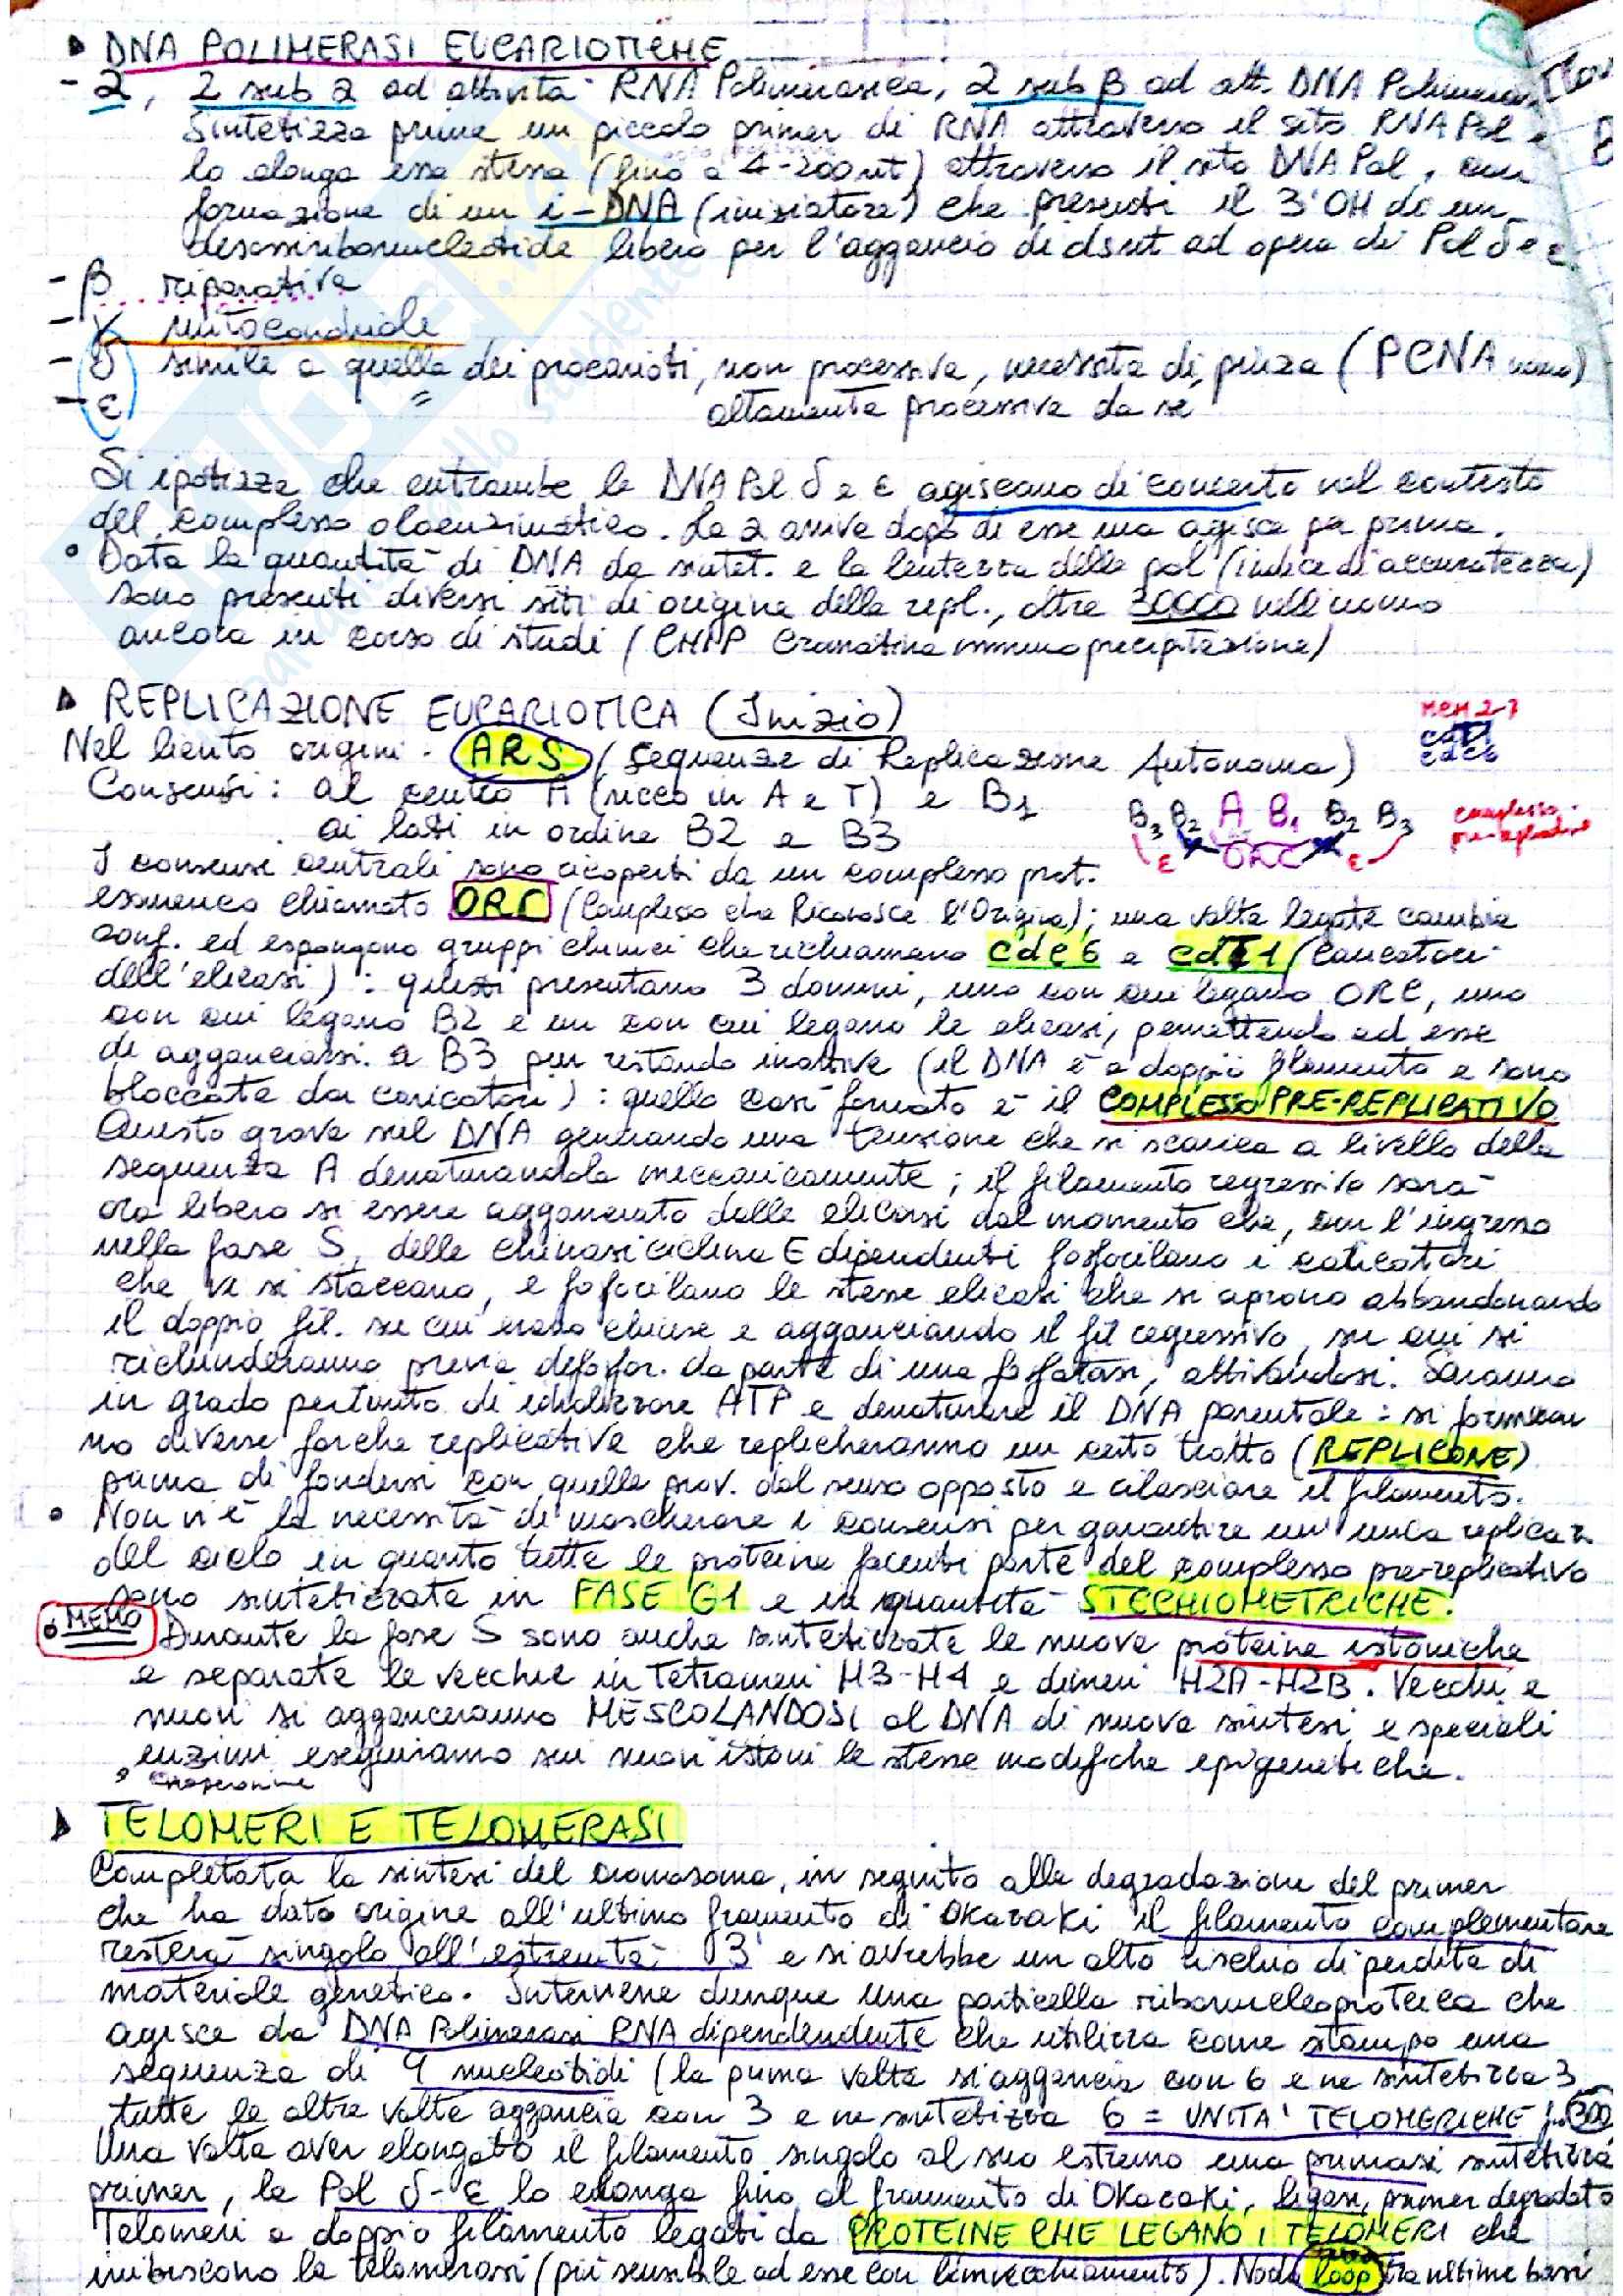 DNA POLIMERASI EUCARIOTICHE
- α, 2 sub α ad attività RNA Polimerasica, 2 sub β ad att. DNA Polimeras.
Sintetizza prima un piccolo primer di RNA attraverso il sito RNA Pol e
lo elonga essa stessa (fino a 4-200 nt) attraverso il sito DNA Pol, con
formazione di un i-DNA (iniziatore) che presenti il 3'OH di un
desossiribonucleotide libero per l'aggancio di dsnt ad opera di Pol δ e ε.
- β riparativa
- γ mitocondriale
- δ simile a quella dei procarioti, non processiva, necessita di pinza (PCNA uomo)
- ε = altamente processiva da sé
Si ipotizza che entrambe le DNA Pol δ e ε agiscano di concerto nel contesto
del complesso oloenzimatico. La α arriva dopo di esse ma agisce per prima.
• Data la quantità di DNA da sintet. e la lentezza delle pol (indice di accuratezza)
sono presenti diversi siti di origine della repl., oltre 30000 nell'uomo
ancora in corso di studi (CHIP Cromatina immunoprecipitazione)
REPLICAZIONE EUCARIOTICA (Inizio)
Nel lievito origini - ARS (Sequenze di Replicazione Autonoma)
Consensi: al centro A (ricco in A e T) e B1
ai lati in ordine B2 e B3
MCM 2-7
cdt1
cdc6
B3 B2 A B1 B2 B3
ε ORC ε
complesso
pre-replicativo
I consensi centrali sono ricoperti da un complesso prot.
esamerico chiamato ORC (Complesso che Riconosce l'Origine); una volta legate cambia
conf. ed espongono gruppi chimici che richiamano cdc6 e cdt1 (Caricatori
dell'elicasi): questi presentano 3 domini, uno con cui legano ORC, uno
con cui legano B2 e un con cui legano le elicasi, permettendo ad esse
di agganciarsi a B3 pur restando inattive (il DNA è a doppio filamento e sono
bloccate dai caricatori): quello così formato è il COMPLESSO PRE-REPLICATIVO
Questo grava sul DNA generando una tensione che si scarica a livello della
sequenza A denaturandola meccanicamente; il filamento regressivo sarà
ora libero si essere agganciato dalle elicasi dal momento che, con l'ingresso
nella fase S, delle chinasi ciclina E dipendenti fosforilano i caricatori
che vi si staccano, e fofocilano le stesse elicasi che si aprono abbandonando
il doppio fil. su cui erano chiuse e agganciando il fil regressivo, su cui si
richiuderanno previa defosfor. da parte di una fosfatasi, attivandosi. Saranno
in grado pertanto di idrolizzare ATP e denaturare il DNA parentale: si formeran
no diverse forche replicative che replicheranno un certo tratto (REPLICONE)
prima di fondersi con quelle prov. dal senso opposto e rilasciare il filamento.
• Non vi è la necessità di mascherare i consensi per garantire un'unica replicaz.
del ciclo in quanto tutte le proteine facenti parte del complesso pre-replicativo
sono sintetizzate in FASE G1 e in quantità STECHIOMETRICHE.
• MEMO Durante la fase S sono anche sintetizzate le nuove proteine istoniche
e separate le vecchie in tetrameri H3-H4 e dimeri H2A-H2B. Vecchi e
nuovi si agganceranno MESCOLANDOSI al DNA di nuova sintesi e speciali
enzimi eseguiranno sui nuovi istoni le stesse modifiche epigenetiche.
chaperonine
TELOMERI E TELOMERASI
Completata la sintesi del cromosoma, in seguito alla degradazione del primer
che ha dato origine all'ultimo frammento di Okazaki il filamento complementare
resterà singolo all'estremità 3' e si avrebbe un alto rischio di perdita di
materiale genetico. Interviene dunque una particella ribonucleoproteica che
agisce da DNA Polimerasi RNA dipendendente che utilizza come stampo una
sequenza di 9 nucleotidi (la prima volta si aggancia con 6 e ne sintetizza 3
tutte le altre volte aggancia con 3 e ne sintetizza 6 = UNITA' TELOMERICHE 300
Una volta aver elongato il filamento singolo al suo estremo una primasi sintetizza
primer, la Pol δ-ε lo elonga fino al frammento di Okazaki, ligasi, primer degradato
Telomeri a doppio filamento legati da PROTEINE CHE LEGANO I TELOMERI che
inibiscono la telomerasi (più sensibile ad esse con l'invecchiamento). Nodo loop tra ultime basi